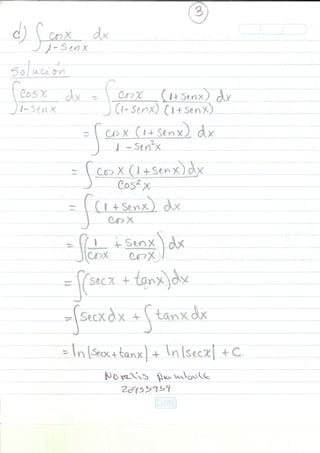 3
d) ∫ cosx / 1-Senx dx
Solución
∫ cosx / 1-Senx dx = ∫ cosx / (1-Senx) (1+Senx) / (1+Senx) dx
= ∫ cosx (1+Senx) dx / 1-Sen²x
= ∫ cosx (1+Senx) dx / Cos²x
= ∫ (1+Senx) dx / Cosx
= ∫ (1/Cosx + Senx/Cosx) dx
= ∫ (secx + tanx) dx
= ∫ Secx dx + ∫ tanx dx
= ln|Secx+tanx| + ln|secx| + C